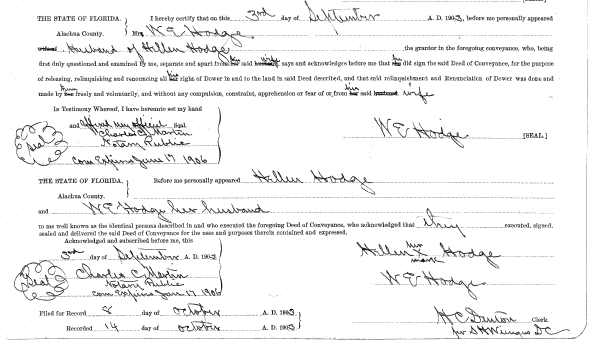 [SEAL]
THE STATE OF FLORIDA. I hereby certify that on this 3rd day of September A. D. 1903, before me personally appeared
Alachua County. Mrs W E Hodge
Husband of Hillen Hodge the grantor in the foregoing conveyance, who, being
first duly questioned and examined by me, separate and apart from his said wife, says and acknowledges before me that he did sign the said Deed of Conveyance, for the purpose
of releasing, relinquishing and renouncing all his rights of Dower in and to the land in said Deed described, and that said relinquishment and Renunciation of Dower was done and
made by him freely and voluntarily, and without any compulsion, constraint, apprehension or fear of or from his said husband, wife
In Testimony Whereof, I have hereunto set my hand
and affixed my official Seal.
Charles C. Martin
Notary Public
Com Expires June 17 1906
Seal
W E Hodge [SEAL.]
THE STATE OF FLORIDA. Before me personally appeared Hillen Hodge
Alachua County.
and W E Hodge her husband
to me well known as the identical persons described in and who executed the foregoing Deed of Conveyance, who acknowledged that they executed, signed,
sealed and delivered the said Deed of Conveyance for the uses and purposes therein contained and expressed.
Acknowledged and subscribed before me, this
3rd day of September A. D. 1903
Charles C. Martin
Notary Public
Com Expires Jun 17 1906
Seal
Hillen her X mark Hodge
W E Hodge
Filed for Record 8 day of October 1903
Recorded 14 day of October A. D. 1903
H C Denton Clerk.
per D C